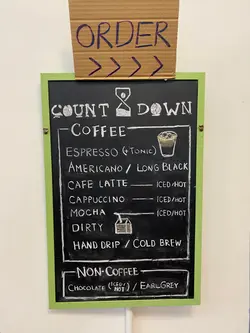 ORDER
> > > >
COUNT DOWN
COFFEE
ESPRESSO (+TONIC)
AMERICANO / LONG BLACK
CAFE LATTE — ICED/HOT
CAPPUCCINO — ICED/HOT
MOCHA — ICED/HOT
DIRTY
HAND DRIP / COLD BREW
NON-COFFEE
CHOCOLATE (ICED/HOT) / EARL GREY